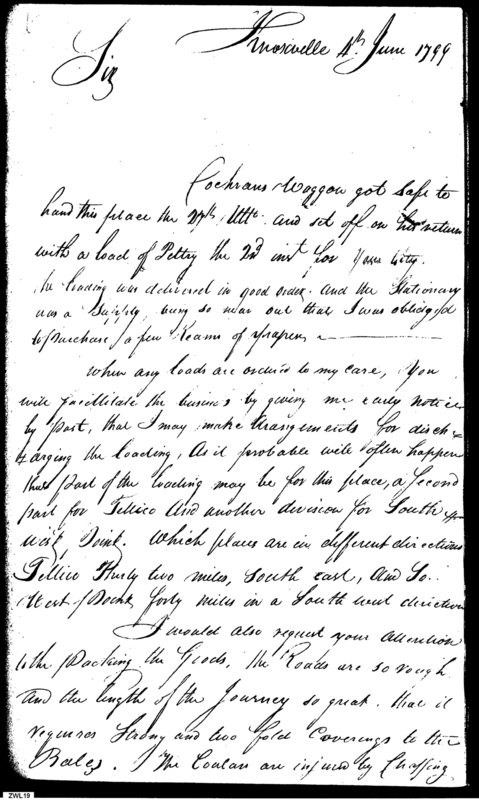 Knoxville 4th June 1799
Sir
Cochrans Waggon got safe to
hand this place the 27th Ult. and set off on his return
with a load of Peltry the 2d inst for Your City.
he loading was delivered in good order. and the Stationary
was a Supply, being so near out that I was obliedged
to purchase a few Reams of paper.
When any loads are ordered to my care, You
will facillitate the business by giving me early notice
by Post, that I may make Arangements for disch-
arging the loading, As it probable will often happen
that part of the loading may be for this place, a Second
part for Tellico And another division for South
west Point. Which places are in different directions
Tellico Thirty two miles, South East, And So..
West Point forty miles in a South west direction
I would also request your attention
to the Packing the Goods, the Roads are so rough
and the length of the Journey so great. that it
requires Strong and two fold Coverings to the
Bales. The are injured by Chaffing
ZWL19